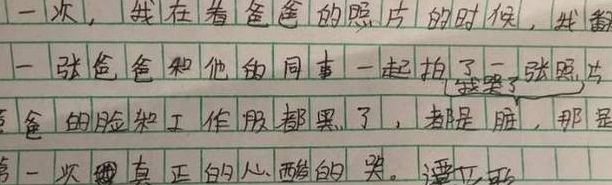 一次，我在着爸爸的照片的时候，我翻
一张爸爸和他的同事一起拍了一张照片
我哭了
爸的脸和工作服都黑了，都是脏，那是
第一次真正的心酸的哭。